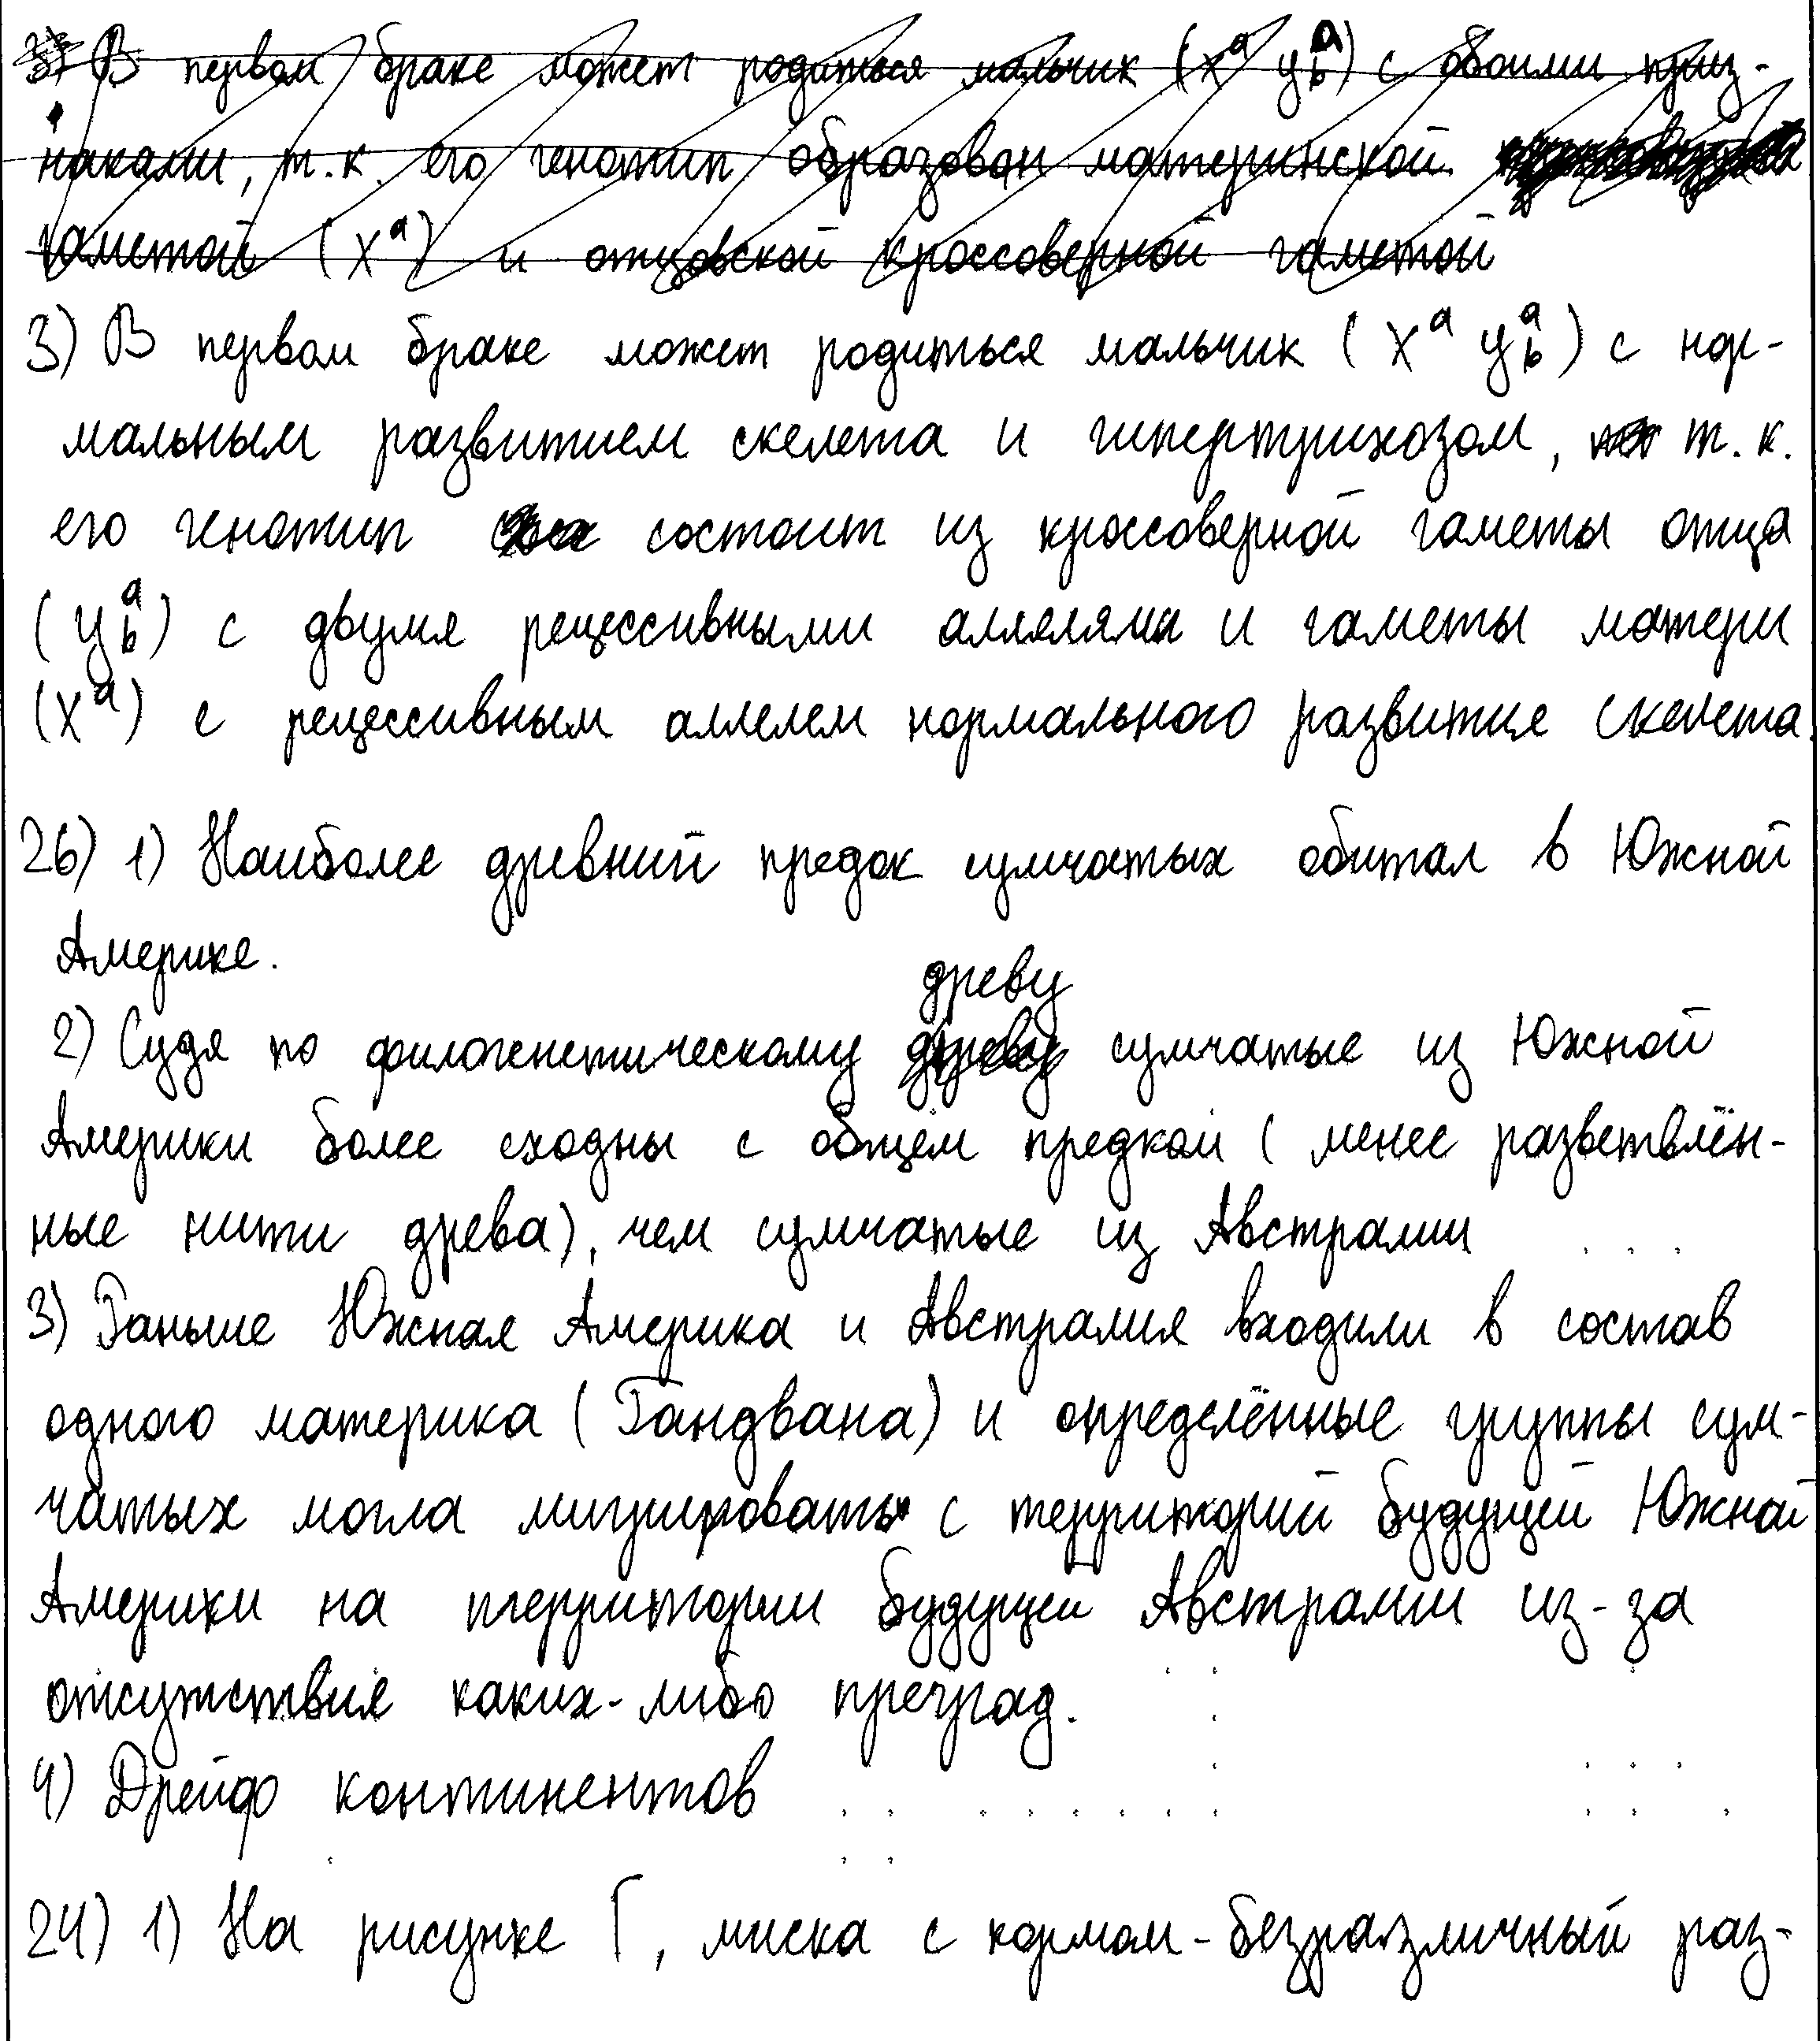 3) В первом браке может родиться мальчик (Xᵃ Yᵇᵃ) с обоими приз-
наками, т.к. его генотип образован материнской
гаметой (Xᵃ) и отцовской кроссоверной гаметой
3) В первом браке может родиться мальчик (Xᵃ Yᵇᵃ) с нор-
мальным развитием скелета и гипертрихозом, т.к.
его генотип состоит из кроссоверной гаметы отца
(Yᵇᵃ) с двумя рецессивными аллелями и гаметы матери
(Xᵃ) с рецессивным аллелем нормального развития скелета.
26) 1) Наиболее древний предок сумчатых обитал в Южной
Америке.
древу
2) Судя по филогенетическому древу сумчатые из Южной
Америки более сходны с общем предком (менее разветвлён-
ные нити древа), чем сумчатые из Австралии
3) Раньше Южная Америка и Австралия входили в состав
одного материка (Гандвана) и определённые группы сум-
чатых могла мигрировать с территорий будущей Южной
Америки на территории будущей Австралии из-за
отсутствия каких-либо преград.
4) Дрейф континентов
24) 1) На рисунке Г, миска с кормом - безразличный раз-